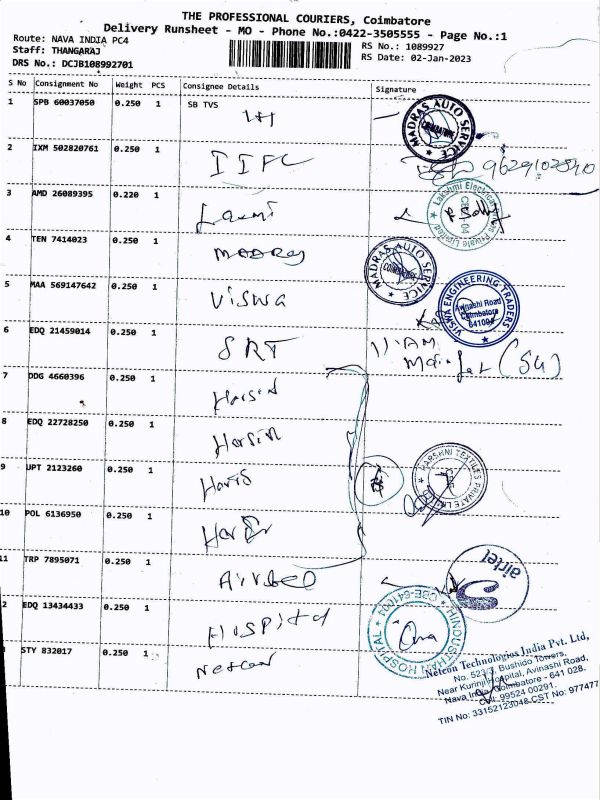 THE PROFESSIONAL COURIERS, Coimbatore
Delivery Runsheet - MO - Phone No.:0422-3505555 - Page No.:1
Route: NAVA INDIA PC4
Staff: THANGARAJ
DRS No.: DCJB108992701
RS No.: 1089927
RS Date: 02-Jan-2023
S No Consignment No Weight PCS Consignee Details Signature
1 SPB 60037050 0.250 1 SB TVS
MADRAS AUTO SERVICE COIMBATORE
2 IXM 502820761 0.250 1 IIFL
3 AMD 26089395 0.220 1 Laxmi
Lakshmi Electrical Private Limited CBE
4 TEN 7414023 0.250 1 MADRAS
MADRAS AUTO SERVICE COIMBATORE
5 MAA 569147642 0.250 1 VISWA
VISWA ENGINEERING TRADERS
Avinashi Road
Coimbatore
641004
6 EDQ 21459014 0.250 1 SRT
7 DDG 4660396 0.250 1
8 EDQ 22728250 0.250 1
9 UPT 2123260 0.250 1
TEXTILES PRIVATE LIMITED
10 POL 6136950 0.250 1
11 TRP 7895071 0.250 1 Airtel
airtel
2 EDQ 13434433 0.250 1 HOSPital
HINDUSTHAN HOSPITAL CBE-641004
STY 832017 0.250 1 Netcon
Netcon Technologies India Pvt. Ltd,
No. 523/ Bushido Towers,
Near Kurinji Hospital, Avinashi Road,
Nava India, Coimbatore - 641 028.
Cell: 99524 00291.
TIN No: 33152123048 CST No: 977477